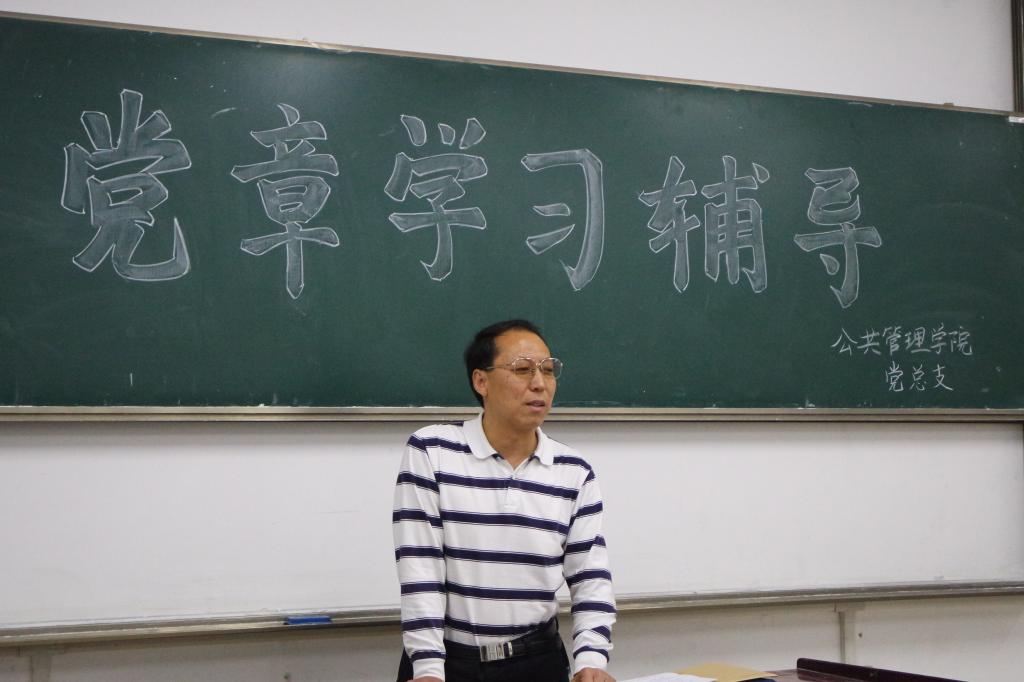 党章学习辅导
公共管理学院
党总支